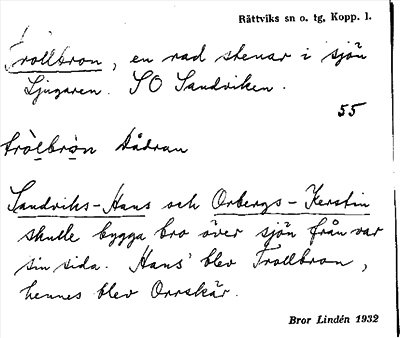 Rättviks sn o. tg, Kopp. l.
Trollbron, en rad stenar i sjön
Ljugaren. SO Sandviken.
55
tròlbrọn Dådran
Sandviks-Hans och Orbergs-Kerstin
skulle bygga bro över sjön från var
sin sida. Hans' blev Trollbron,
hennes blev Orrskär.
Bror Lindén 1932